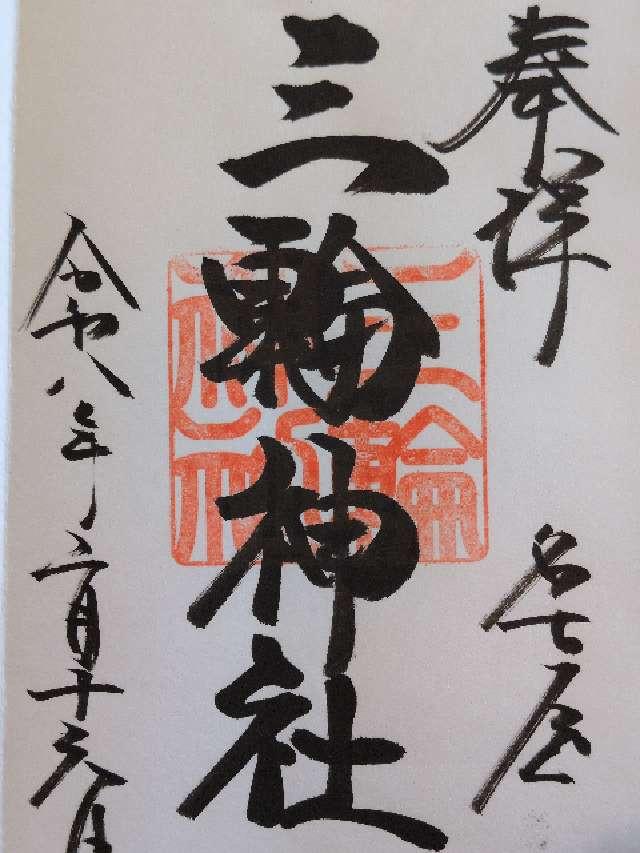 奉拝
名古屋
三輪神社
令和八年 月十 日
三輪
神社